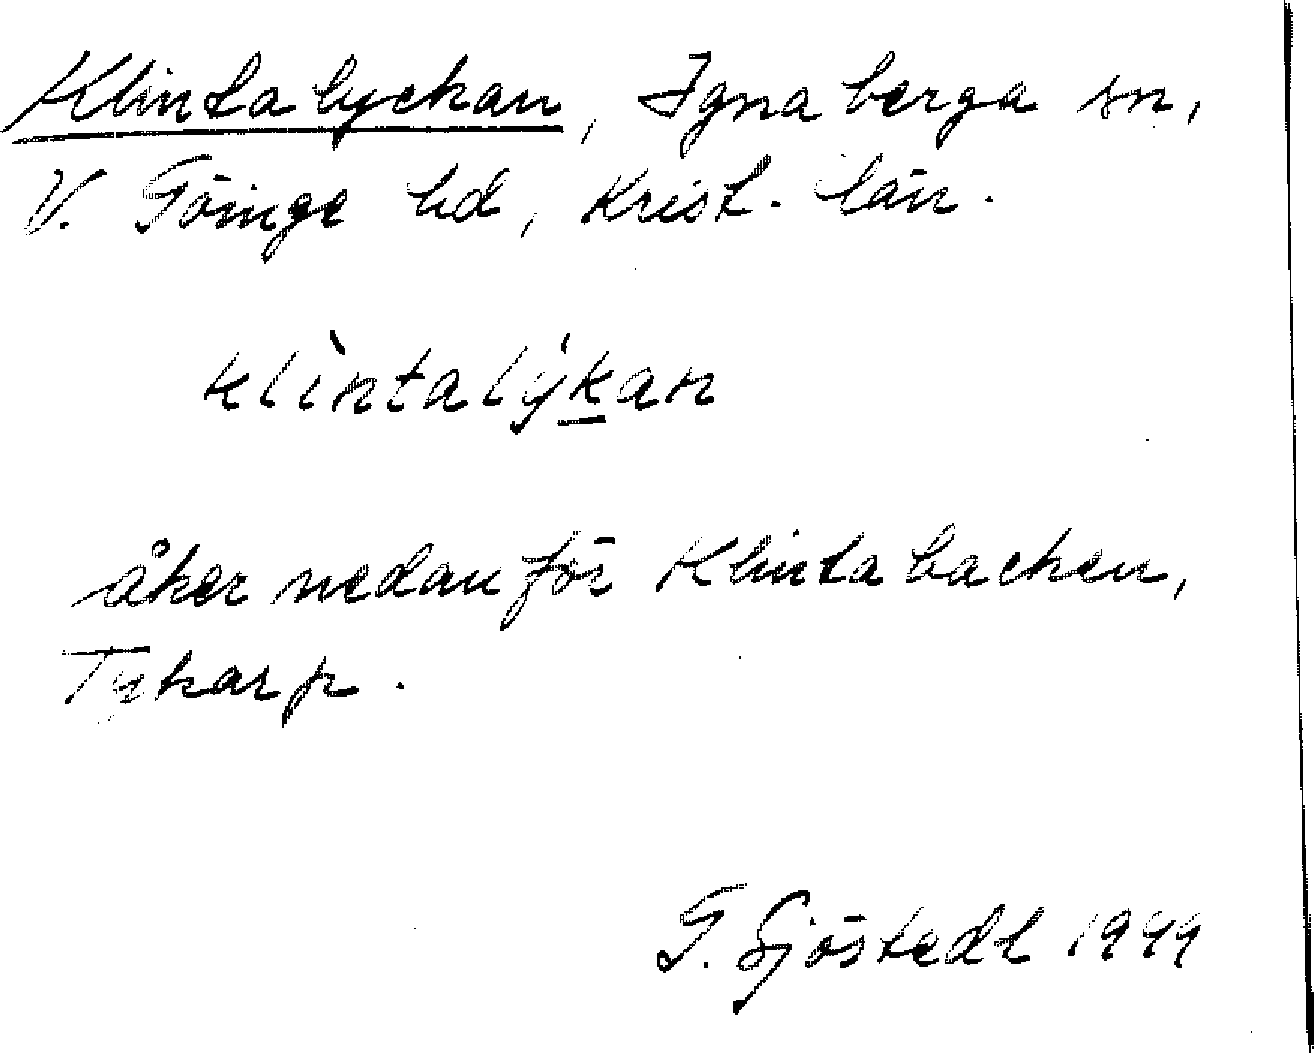 Klintalyckan, Ignaberga sn,
V. Göinge hd, Krist. län.
klìntalýkan
åker nedanför Klintabacken,
Tykarp.
G. Sjöstedt 1949